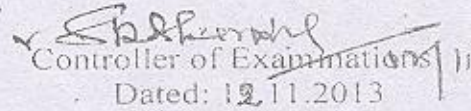 Controller of Examinations
Dated: 12.11.2013